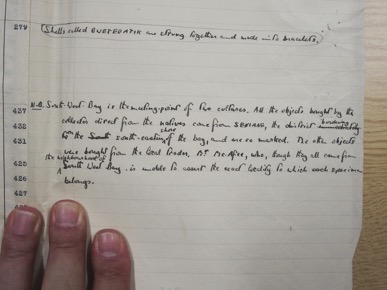 279 Shells called BUSTEDATIK are strung together and made into bracelets.
N.B. South West Bay is the meeting-point of two cultures. All the objects bought by the
437 collector direct from the natives came from SENIANG, the district bordering
432 the south-eastern shore of the bay, and are so marked. The other objects
631 were bought from the local trader, Mr. McAfee, who, though they all come from
the neighbourhood of
425 South West Bay, is unable to the exact locality to which each specimen
426 belongs.
427